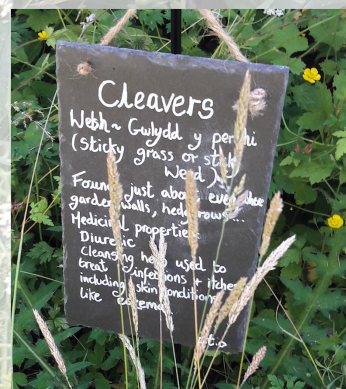 Cleavers
Welsh ~ Gwlydd y perthi
(sticky grass or sticky
Weed)
Found just about everywhere
garden walls, hedgerows...
Medicinal properties:
Diuretic
Cleansing herb used to
treat infections or itches
including skin conditions
like eczema